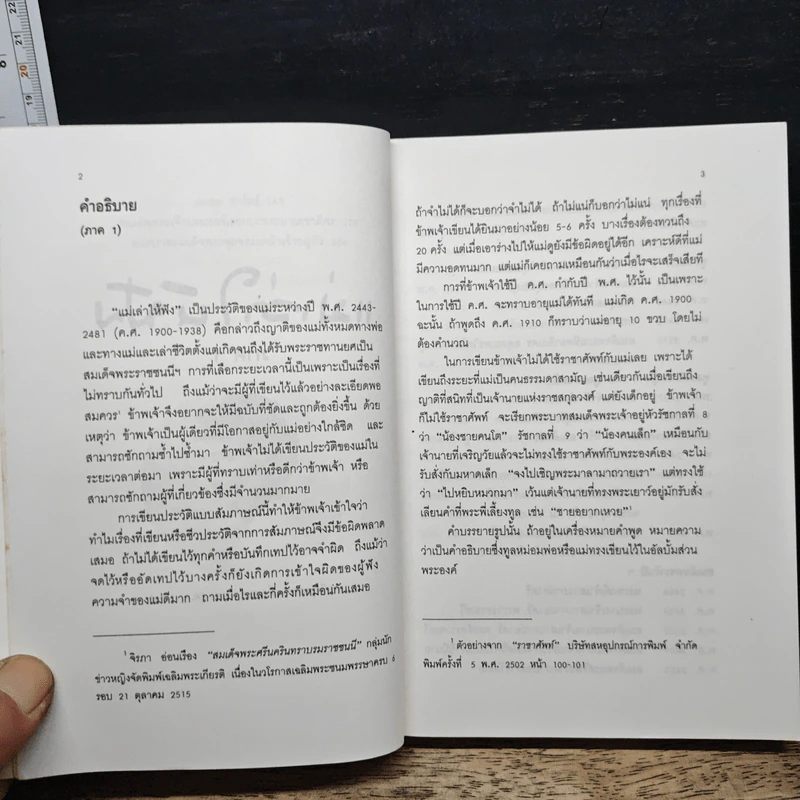 2
คำอธิบาย
(ภาค 1)
"แม่เล่าให้ฟัง" เป็นประวัติของแม่ระหว่างปี พ.ศ. 2443-
2481 (ค.ศ. 1900-1938) คือกล่าวถึงญาติของแม่ทั้งหมดทางพ่อ
และทางแม่และเล่าชีวิตตั้งแต่เกิดจนถึงได้รับพระราชทานยศเป็น
สมเด็จพระราชชนนีฯ การที่เลือกระยะเวลานี้เป็นเพราะเป็นเรื่องที่
ไม่ทราบกันทั่วไป ถึงแม้ว่าจะมีผู้ที่เขียนไว้แล้วอย่างละเอียดพอ
สมควร¹ ข้าพเจ้าจึงอยากจะให้มีฉบับที่ชัดและถูกต้องยิ่งขึ้น ด้วย
เหตุว่า ข้าพเจ้าเป็นผู้เดียวที่มีโอกาสอยู่กับแม่อย่างใกล้ชิด และ
สามารถซักถามซ้ำไปซ้ำมา ข้าพเจ้าไม่ได้เขียนประวัติของแม่ใน
ระยะเวลาต่อมา เพราะมีผู้ที่ทราบเท่าหรือดีกว่าข้าพเจ้า หรือ
สามารถซักถามผู้ที่เกี่ยวข้องซึ่งมีจำนวนมากมาย
การเขียนประวัติแบบสัมภาษณ์นี้ทำให้ข้าพเจ้าเข้าใจว่า
ทำไมเรื่องที่เขียนหรือชีวประวัติจากการสัมภาษณ์จึงมีข้อผิดพลาด
เสมอ ถ้าไม่ได้เขียนไว้ทุกคำหรือบันทึกเทปไว้อาจจำผิด ถึงแม้ว่า
จดไว้หรืออัดเทปไว้บางครั้งก็ยังเกิดการเข้าใจผิดของผู้ฟัง
ความจำของแม่ดีมาก ถามเมื่อไรและกี่ครั้งก็เหมือนกันเสมอ
¹ จิรภา อ่อนเรือง "สมเด็จพระศรีนครินทราบรมราชชนนี" กลุ่มนัก
ข่าวหญิงจัดพิมพ์เฉลิมพระเกียรติ เนื่องในวโรกาสเฉลิมพระชนมพรรษาครบ 6
รอบ 21 ตุลาคม 2515
3
ถ้าจำไม่ได้ก็จะบอกว่าจำไม่ได้ ถ้าไม่แน่ก็บอกว่าไม่แน่ ทุกเรื่องที่
ข้าพเจ้าเขียนได้ยินมาอย่างน้อย 5-6 ครั้ง บางเรื่องต้องทวนถึง
20 ครั้ง แต่เมื่อเอาร่างไปให้แม่ดูยังมีข้อผิดอยู่ได้อีก เคราะห์ดีที่แม่
มีความอดทนมาก แต่แม่ก็เคยถามเหมือนกันว่าเมื่อไรจะเสร็จเสียที
การที่ข้าพเจ้าใช้ปี ค.ศ. กำกับปี พ.ศ. ไว้นั้น เป็นเพราะ
ในการใช้ปี ค.ศ. จะทราบอายุแม่ได้ทันที แม่เกิด ค.ศ. 1900
ฉะนั้น ถ้าพูดถึง ค.ศ. 1910 ก็ทราบว่าแม่อายุ 10 ขวบ โดยไม่
ต้องคำนวณ
ในการเขียนข้าพเจ้าไม่ได้ใช้ราชาศัพท์กับแม่เลย เพราะได้
เขียนถึงระยะที่แม่เป็นคนธรรมดาสามัญ เช่นเดียวกันเมื่อเขียนถึง
ญาติที่สนิทที่เป็นเจ้านายแห่งราชสกุลวงศ์ แต่ยังเด็กอยู่ ข้าพเจ้า
ก็ไม่ใช้ราชาศัพท์ จะเรียกพระบาทสมเด็จพระเจ้าอยู่หัวรัชกาลที่ 8
ว่า "น้องชายคนโต" รัชกาลที่ 9 ว่า "น้องคนเล็ก" เหมือนกับ
เจ้านายที่เจริญวัยแล้วจะไม่ทรงใช้ราชาศัพท์กับพระองค์เอง จะไม่
รับสั่งกับมหาดเล็ก "จงไปเชิญพระมาลามาถวายเรา" แต่ทรงใช้
ว่า "ไปหยิบหมวกมา" เว้นแต่เจ้านายที่ทรงพระเยาว์อยู่มักรับสั่ง
เลียนคำที่พระพี่เลี้ยงทูล เช่น "ชายอยากเหวย"¹
คำบรรยายรูปนั้น ถ้าอยู่ในเครื่องหมายคำพูด หมายความ
ว่าเป็นคำอธิบายซึ่งทูลหม่อมพ่อหรือแม่ทรงเขียนไว้ในอัลบั้มส่วน
พระองค์
¹ ตัวอย่างจาก "ราชาศัพท์" บริษัทสหอุปกรณ์การพิมพ์ จำกัด
พิมพ์ครั้งที่ 5 พ.ศ. 2502 หน้า 100-101
19
20
21
22